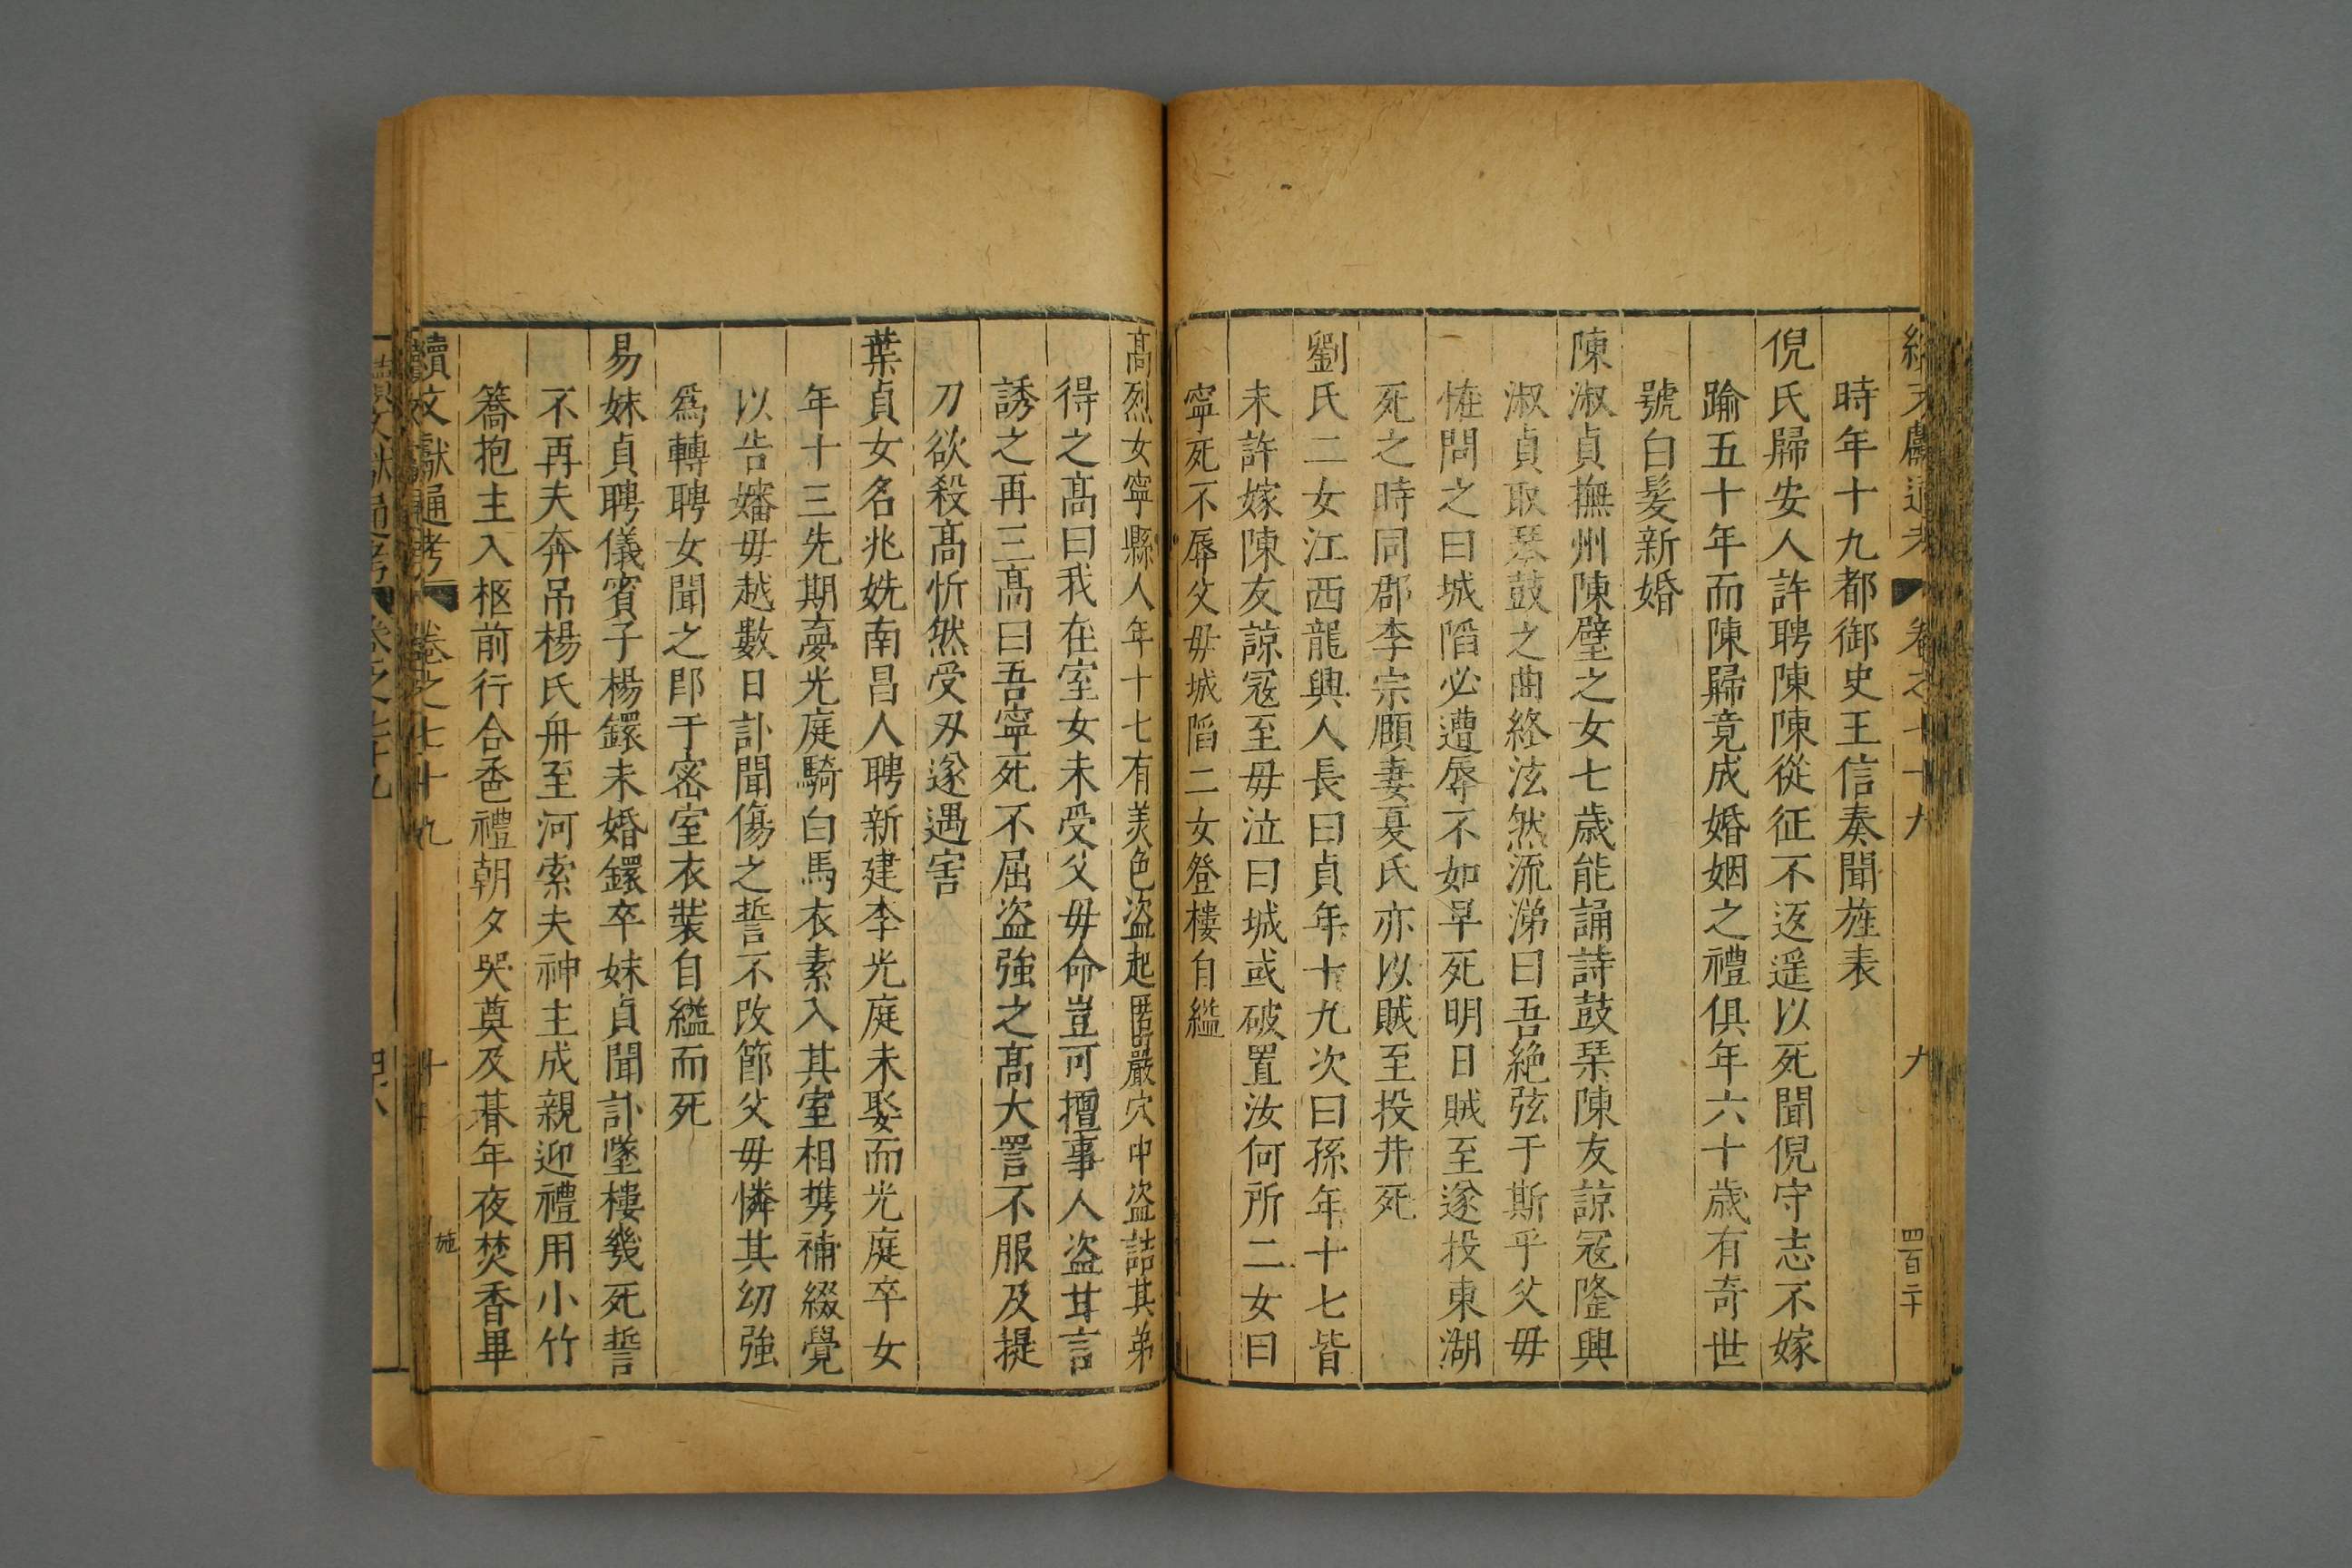 續文獻通考 卷之七十九 九 四百二十
時年十九都御史王信奏聞旌表
倪氏歸安人許聘陳陳從征不返遥以死聞倪守志不嫁
踰五十年而陳歸竟成婚姻之禮俱年六十歳有奇世
號白髪新婚
陳淑貞撫州陳璧之女七歳能誦詩鼓琹陳友諒冦隆興
淑貞取琴鼓之曲終泫然流涕曰吾絶弦于斯乎父毋
恠問之曰城䧟必遭辱不如早死明日賊至遂投東湖
死之時同郡李宗頤妻夏氏亦以賊至投井死
劉氏二女江西龍興人長曰貞年十九次曰孫年十七皆
未許嫁陳友諒冦至毋泣曰城或破置汝何所二女曰
寧死不辱父毋城䧟二女登樓自縊
髙烈女寧縣人年十七有美色盗起匿巖穴中盗詰其弟
得之髙曰我在室女未受父毋命豈可擅事人盗甘言
誘之再三髙曰吾寧死不屈盗強之髙大詈不服及提
刀欲殺髙忻然受刄遂遇害
葉貞女名兆姺南昌人聘新建李光庭未娶而光庭卒女
年十三先期夣光庭騎白馬衣素入其室相携補綴覺
以告嬸毋越數日訃聞傷之誓不改節父毋憐其幼強
爲轉聘女聞之即于密室衣裝自縊而死
易妹貞聘儀賓子楊鐶未婚鐶卒妹貞聞訃墜樓幾死誓
不再夫奔吊楊氏舟至河索夫神主成親迎禮用小竹
籌抱主入柩前行合巹禮朝夕哭奠及朞年夜焚香畢
續文獻通考 卷之七十九 十 施